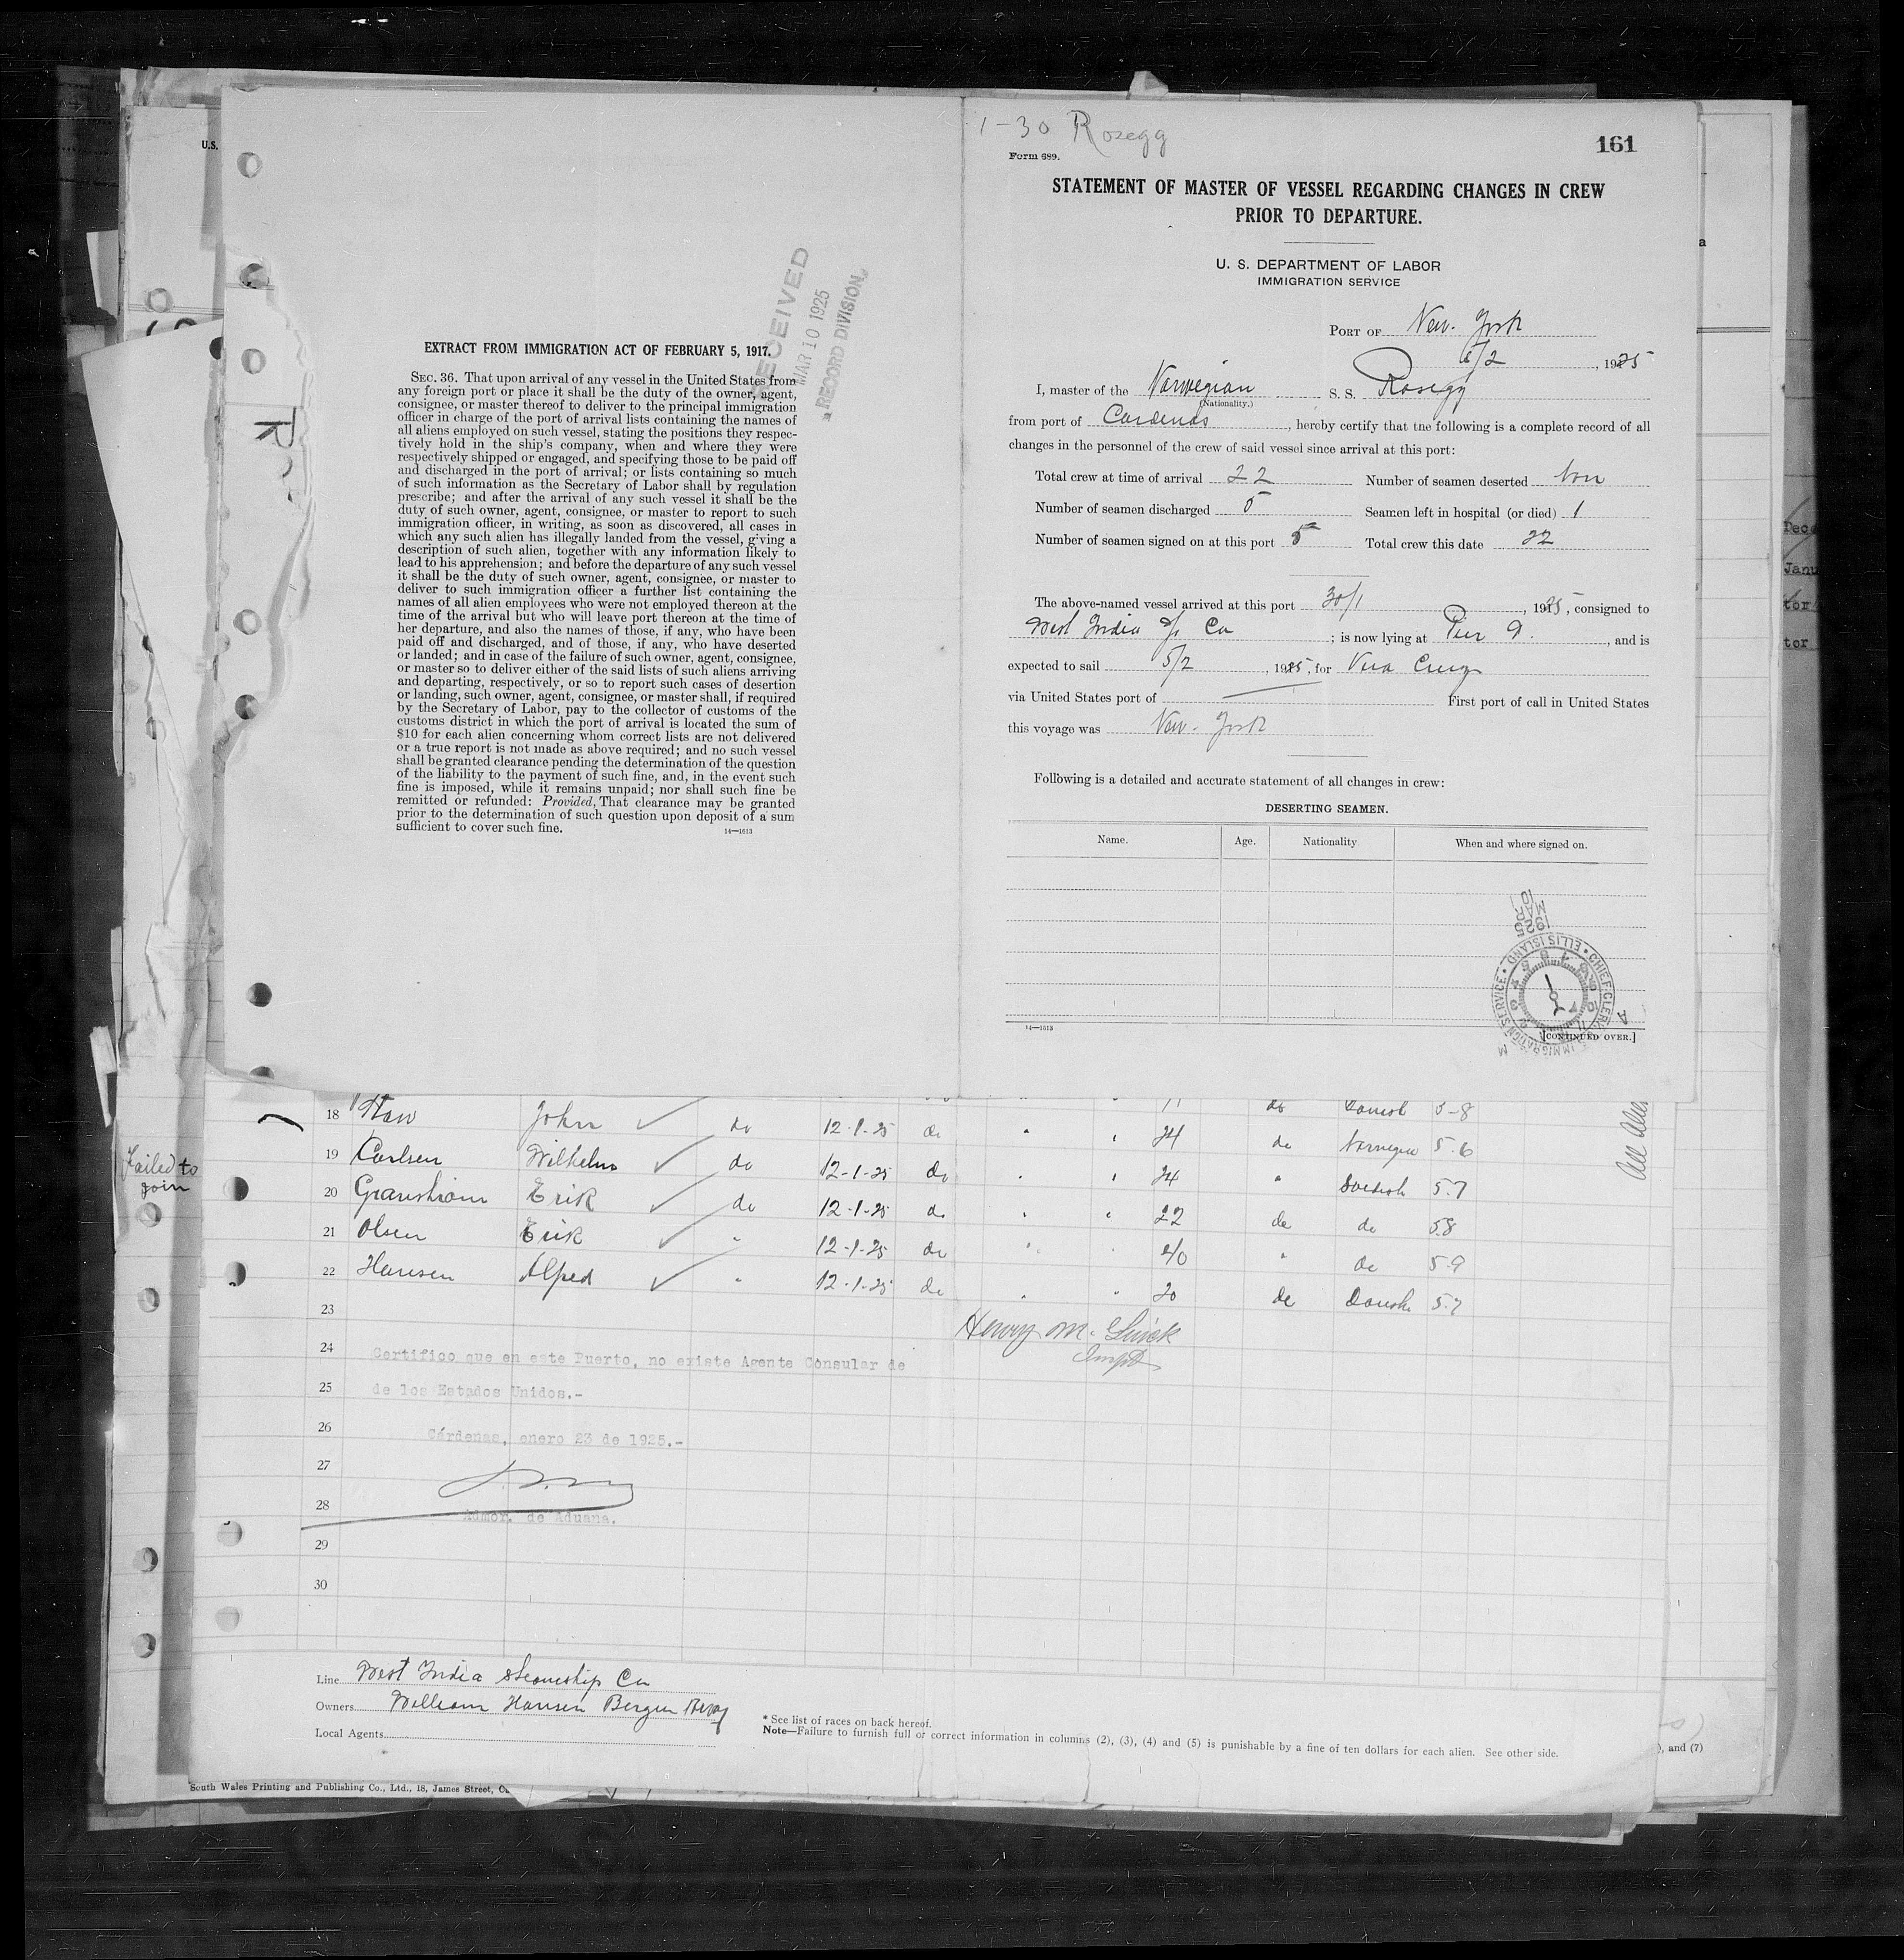 U.S.
EXTRACT FROM IMMIGRATION ACT OF FEBRUARY 5, 1917.
SEC. 36. That upon arrival of any vessel in the United States from
any foreign port or place it shall be the duty of the owner, agent,
consignee, or master thereof to deliver to the principal immigration
officer in charge of the port of arrival lists containing the names of
all aliens employed on such vessel, stating the positions they respec-
tively hold in the ship's company, when and where they were
respectively shipped or engaged, and specifying those to be paid off
and discharged in the port of arrival; or lists containing so much
of such information as the Secretary of Labor shall by regulation
prescribe; and after the arrival of any such vessel it shall be the
duty of such owner, agent, consignee, or master to report to such
immigration officer, in writing, as soon as discovered, all cases in
which any such alien has illegally landed from the vessel, giving a
description of such alien, together with any information likely to
lead to his apprehension; and before the departure of any such vessel
it shall be the duty of such owner, agent, consignee, or master to
deliver to such immigration officer a further list containing the
names of all alien employees who were not employed thereon at the
time of the arrival but who will leave port thereon at the time of
her departure, and also the names of those, if any, who have been
paid off and discharged, and of those, if any, who have deserted
or landed; and in case of the failure of such owner, agent, consignee,
or master so to deliver either of the said lists of such aliens arriving
and departing, respectively, or so to report such cases of desertion
or landing, such owner, agent, consignee, or master shall, if required
by the Secretary of Labor, pay to the collector of customs of the
customs district in which the port of arrival is located the sum of
$10 for each alien concerning whom correct lists are not delivered
or a true report is not made as above required; and no such vessel
shall be granted clearance pending the determination of the question
of the liability to the payment of such fine, and, in the event such
fine is imposed, while it remains unpaid; nor shall such fine be
remitted or refunded: Provided, That clearance may be granted
prior to the determination of such question upon deposit of a sum
sufficient to cover such fine.
14—1613
RECEIVED
MAR 10 1925
RECORD DIVISION
1-30 Rosegg
161
Form 689.
STATEMENT OF MASTER OF VESSEL REGARDING CHANGES IN CREW
PRIOR TO DEPARTURE.
U. S. DEPARTMENT OF LABOR
IMMIGRATION SERVICE
PORT OF New-York
6/2, 1925
I, master of the Norwegian S. S. Rosegg
(Nationality.)
from port of Cardenas, hereby certify that the following is a complete record of all
changes in the personnel of the crew of said vessel since arrival at this port:
Total crew at time of arrival 22 Number of seamen deserted
Number of seamen discharged 5 Seamen left in hospital (or died) 1
Number of seamen signed on at this port 5 Total crew this date 22
The above-named vessel arrived at this port 30/1, 1925, consigned to
West India S/S Co; is now lying at Pier 9., and is
expected to sail 5/2, 1925, for Vera Cruz
via United States port of First port of call in United States
this voyage was New-York
Following is a detailed and accurate statement of all changes in crew:
DESERTING SEAMEN.
Name. Age. Nationality. When and where signed on.
MAR 10 1925
CHIEF CLERK • ELLIS ISLAND • IMMIGRATION SERVICE
14—1613
[CONTINUED OVER.]
18 John do 12-1-25 do 24 do Norwegian 5.6
Failed to join
19 Carlsen Wilhelm do 12-1-25 do 24 " Swedish 5.7
20 Granstrom Erik do 12-1-25 do 22 do do 5.8
21 Olsen Erik " 12-1-25 do 40 " do 5.9
22 Hansen Alfred " 12-1-25 do 20 do Danish 5.7
23
24
25
26
27
28
29
30
Certifico que en este Puerto, no existe Agente Consular de
de los Estados Unidos.-
Cárdenas, enero 23 de 1925.-
Admor. de Aduana.
Line West India Steamship Co
Owners William Hansen Bergen
Local Agents
* See list of races on back hereof.
Note—Failure to furnish full or correct information in columns (2), (3), (4) and (5) is punishable by a fine of ten dollars for each alien. See other side.
), and (7)
South Wales Printing and Publishing Co., Ltd., 18, James Street,